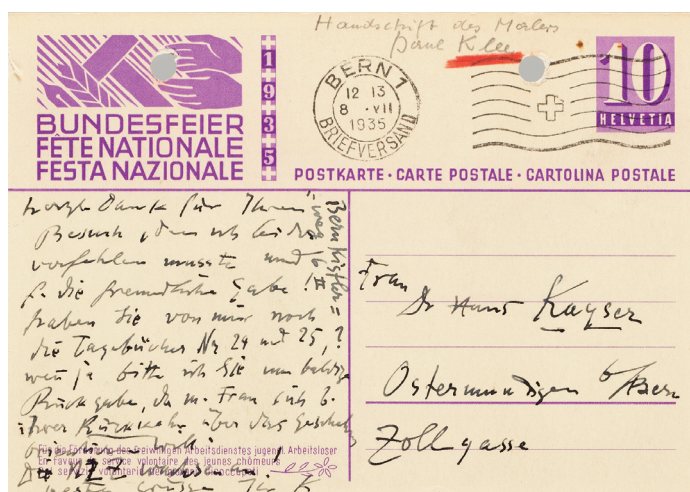 Handschrift des Malers
Paul Klee
BUNDESFEIER
FÊTE NATIONALE
FESTA NAZIONALE
1935
BERN 1
12 13
8 · VII
1935
BRIEFVERSAND
10
HELVETIA
POSTKARTE · CARTE POSTALE · CARTOLINA POSTALE
Bern Kistler=
weg 6 II
herzl Dank für Ihren
Besuch, den ich leider
verfehlen musste und
f. die freundliche Gabe!
haben Sie von mir noch
die Tagebücher Nr 24 und 25,?
wenn ja bitte ich Sie um baldige
Rückgabe, da m. Frau sich b.
ihrer Rückkehr über das
Für die Förderung des freiwilligen Arbeitsdienstes jugendl. Arbeitsloser
En faveur du service volontaire des jeunes chômeurs
volontario
Frau
Dr Hans Kayser
Ostermundigen b/Bern
Zollgasse